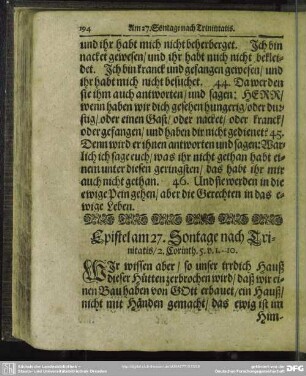 194 Am 27. Sontage nach Trinitatis.
und ihr habt mich nicht beherberget. Ich bin
nacket gewesen/ und ihr habt mich nicht beklei-
det. Ich bin kranck und gefangen gewesen/ und
ihr habt mich nicht besuchet. 44. Da werden
sie ihm auch antworten/ und sagen: HERR/
wenn haben wir dich gesehen hungerig/ oder dur-
stig/ oder einen Gast/ oder nacket/ oder kranck/
oder gefangen/ und haben dir nicht gedienet? 45.
Denn wird er ihnen antworten und sagen: War-
lich ich sage euch/ was ihr nicht gethan habt ei-
nem unter diesen geringsten/ das habt ihr mir
auch nicht gethan. 46. Und sie werden in die
ewige Pein gehen/ aber die Gerechten in das e-
wige Leben.
Epistel am 27. Sontage nach Tri-
nitatis/ 2. Corinth. 5. v. 1.--10.
WJr wissen aber/ so unser irrdisch Hauß
dieser Hütten zerbrochen wird/ daß wir ei-
nen Bau haben von GOtt erbauet/ ein Hauß/
nicht mit Händen gemacht/ das ewig ist im
Him-